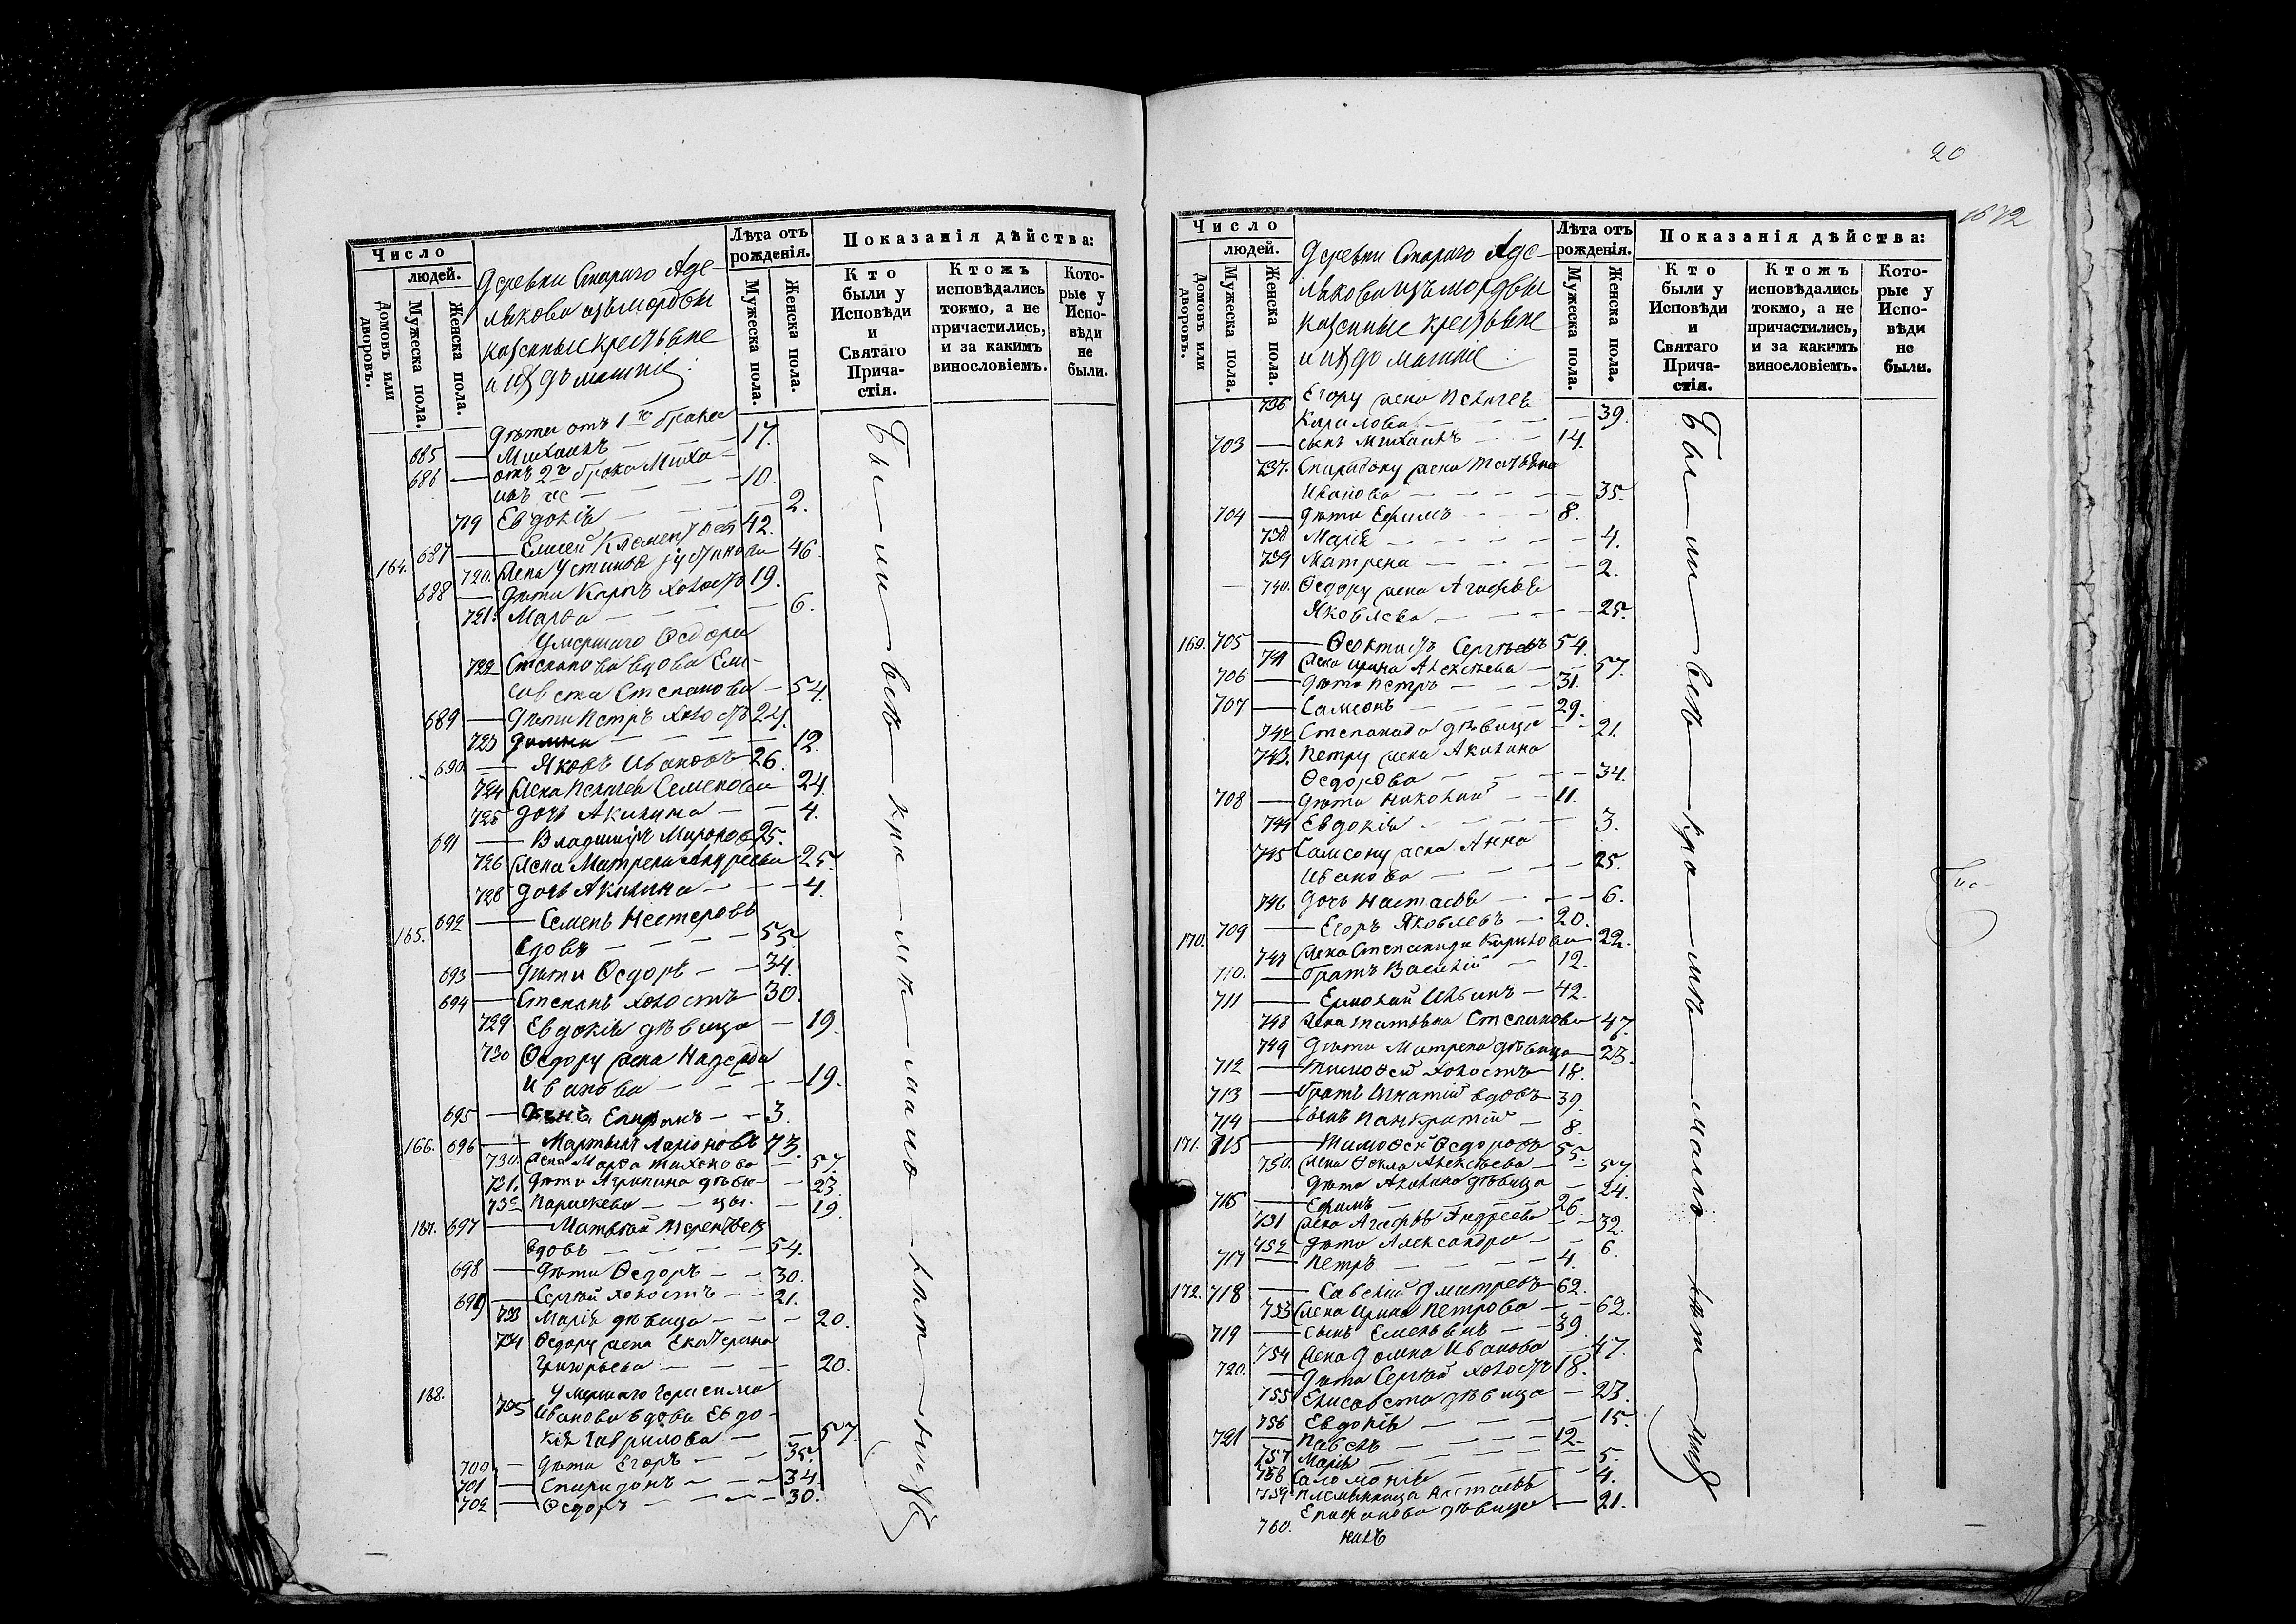 Число
людей.
Домовъ или дворовъ.
Мужеска пола.
Женска пола.
Деревни Стараго Аде-
лякова изъ мордвы
казенные крестьяне
и ихъ домашніе:
Лѣта отъ рожденія.
Мужеска пола.
Женска пола.
Показанія дѣйства:
Кто были у Исповѣди и Святаго Прича-стія.
Ктожъ исповѣдались токмо, а не причастились, и за какимъ винословіемъ.
Кото-рые у Испо-вѣди не были.
Дѣти отъ 1го брака
685 — Михаилъ — — — 17.
686 — отъ 2го брака Миха-
илъ же — — — 10.
719 Евдокія — — — 2.
164. 687 — Елисей Клементьевъ 42.
720. Жена Устинья Іустинова 46.
688 — Дѣти Карпъ холостъ 19.
721. Марѳа — — — 6.
Умершаго Ѳедора
722 Степанова вдова Ели-
савета Степанова — 54.
689 — Дѣти Петръ холостъ 24.
723 Домна — — — 12.
690. — Яковъ Ивановъ 26.
724 Жена Пелагея Семенова 24.
725 Дочь Акилина — — 4.
691 — Владиміръ Мироновъ 25.
726 Жена Матрена Андреева 25.
728 Дочь Акилина — — — 4.
165. 692 — Семенъ Нестеровъ
вдовъ — — — — 55.
693 — Дѣти Ѳедоръ — — 34.
694 — Степанъ холостъ — 30.
729 Евдокія дѣвица — 19.
730 Ѳедору жена Надежда
Иванова — — — — 19.
695 — Сынъ Епифанъ — — 3.
166. 696 — Мартынъ Ларіоновъ 73.
730. Жена Марѳа Тихонова — 57.
731. Дѣти Агрипина дѣви- — 23.
732 Параскева — — цы. — 19.
167. 697 — Матвей Терентьевъ
вдовъ — — — — 54.
698 — Дѣти Ѳедоръ — — 30.
699 — Сергей холостъ — — 21.
733 Марія дѣвица — — — 20.
734 Ѳедору жена Екатерина
Григорьева — — — 20.
168. Умершаго Герасима
735 Иванова вдова Евдо-
кія Гаврилова — — 57.
700 — Дѣти Егоръ — — 35.
701 — Спиридонъ — — — 34
702 — Ѳедоръ — — — — 30.
Бы — ли — всѣ — кро — мѣ — мало — лѣт — нихъ
20
1672
Число
людей.
Домовъ или дворовъ.
Мужеска пола.
Женска пола.
Деревни Стараго Аде-
лякова изъ мордвы
казенные крестьяне
и ихъ домашніе:
Лѣта отъ рожденія.
Мужеска пола.
Женска пола.
Показанія дѣйства:
Кто были у Исповѣди и Святаго Прича-стія.
Ктожъ исповѣдались токмо, а не причастились, и за какимъ винословіемъ.
Кото-рые у Испо-вѣди не были.
736 Егору жена Пелагея
Кирилова — — — 39.
703 — сынъ Михаилъ — — 14.
737. Спиридону жена Татьяна
Иванова — — — — 35.
704 — Дѣти Ефимъ — — 8.
738 Марія — — — — 4.
739 Матрена — — — — 2.
740. Ѳедору жена Агафья
Яковлева — — — — 25.
169. 705 — Ѳеоктистъ Сергѣевъ 54.
741 Жена Ирина Алексѣева — — 57.
706 — Дѣти Петръ — — — 31.
707 — Самсонъ — — — 29.
742 Степанида дѣвица — — 21.
743. Петру жена Акилина
Ѳедорова — — — — 34.
708 — Дѣти Николай — — 11.
744 Евдокія — — — — 3.
745 Самсону жена Анна
Иванова — — — — 25.
746 Дочь Настасья — — — 6.
170. 709 — Егоръ Яковлевъ — 20.
747 Жена Степанида Кирилова — 22.
710. — братъ Василій — 12.
711 — Ермолай Ильинъ — 42.
748 Жена Татьяна Степанова 47.
749 Дѣти Матрена дѣвица — 23.
712 — Тимоѳей холостъ — 18.
713 — братъ Игнатій вдовъ 39.
714 — сынъ Панкратій — 8.
171. 715 — Тимоѳей Ѳедоровъ 55.
750. Жена Ѳекла Алексѣева — — 57
Дѣти Акилина дѣвица — 24.
716 — Ефимъ — — — — 26.
751 Жена Агафья Андреева — — 32.
752 Дѣти Александра — — 6.
717 — Петръ — — — — 4.
172. 718 — Савелій Дмитревъ 62.
753 Жена Ирина Петрова — — 62.
719 — сынъ Емельянъ — — 39.
754 Жена Домна Иванова — 47.
720. — Дѣти Сергей холостъ 18.
755 Елисавета дѣвица — 23.
756 Евдокія — — — — 15.
721 — Павелъ — — — — 12.
757 Марія — — — — 5.
758 Саломонія — — — — 4.
759. Племянница Настасья
Епифанова дѣвица — 21.
760.
нихъ
Бы — ли — всѣ — кро — мѣ — мало — лѣт — нихъ